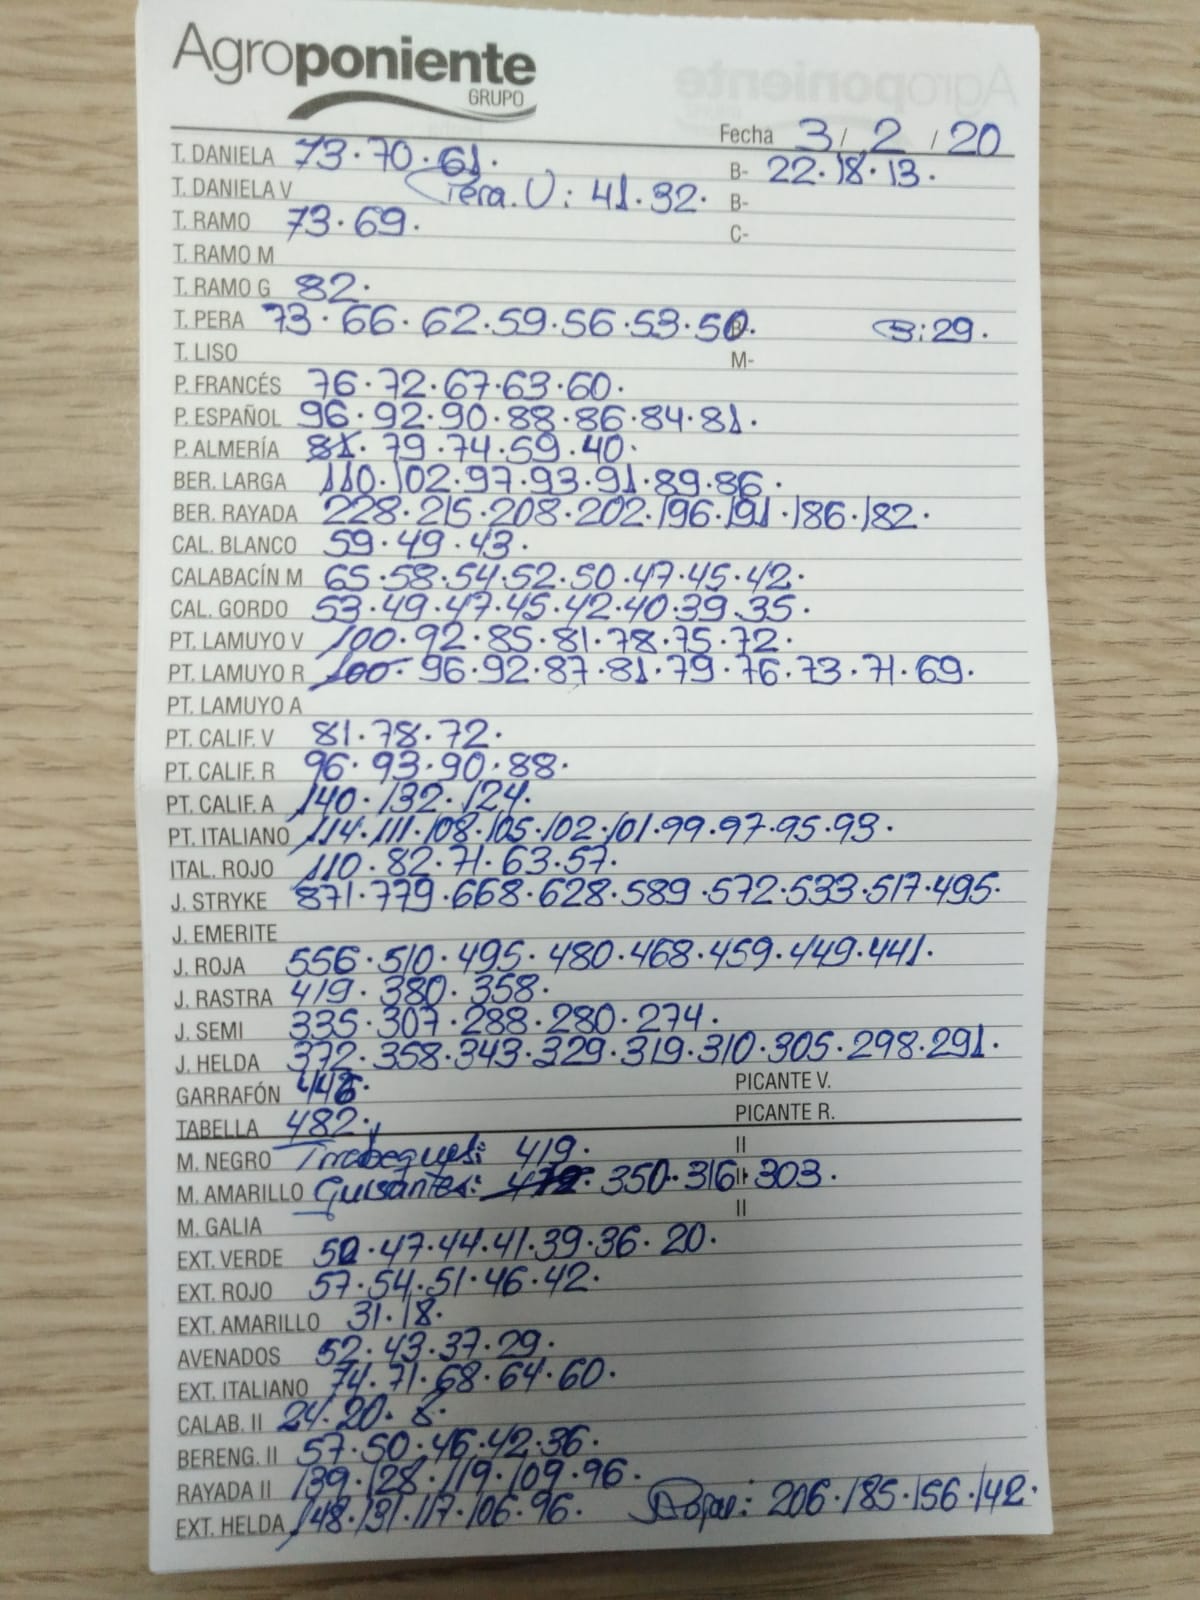 Agroponiente
GRUPO
Fecha 3 / 2 / 20
T. DANIELA 73·70·61· B- 22·18·13·
T. DANIELA V Pera. V: 41·32· B-
T. RAMO 73·69· C-
T. RAMO M
T. RAMO G 82·
T. PERA 73·66·62·59·56·53·50· B: 29·
T. LISO M-
P. FRANCÉS 76·72·67·63·60·
P. ESPAÑOL 96·92·90·88·86·84·81·
P. ALMERÍA 81·79·74·59·40·
BER. LARGA 110·102·97·93·91·89·86·
BER. RAYADA 228·215·208·202·196·191·186·182·
CAL. BLANCO 59·49·43·
CALABACÍN M 65·58·54·52·50·47·45·42·
CAL. GORDO 53·49·47·45·42·40·39·35·
PT. LAMUYO V 100·92·85·81·78·75·72·
PT. LAMUYO R 100·96·92·87·81·79·76·73·71·69·
PT. LAMUYO A
PT. CALIF. V 81·78·72·
PT. CALIF. R 96·93·90·88·
PT. CALIF. A 140·132·124·
PT. ITALIANO 114·111·108·105·102·101·99·97·95·93·
ITAL. ROJO 110·82·71·63·57·
J. STRYKE 871·779·668·628·589·572·533·517·495·
J. EMERITE
J. ROJA 556·510·495·480·468·459·449·441·
J. RASTRA 419·380·358·
J. SEMI 335·307·288·280·274·
J. HELDA 372·358·343·329·319·310·305·298·291·
GARRAFÓN PICANTE V.
TABELLA 482· PICANTE R.
M. NEGRO Tirabeques: 419· II
M. AMARILLO Guisantes: 350·316· II 303·
M. GALIA II
EXT. VERDE 50·47·44·41·39·36·20·
EXT. ROJO 57·54·51·46·42·
EXT. AMARILLO 31·18·
AVENADOS 52·43·37·29·
EXT. ITALIANO 74·71·68·64·60·
CALAB. II 24·20·8·
BERENG. II 57·50·46·42·36·
RAYADA II 139·128·119·109·96·
EXT. HELDA 148·131·117·106·96· Rojas: 206·185·156·142·